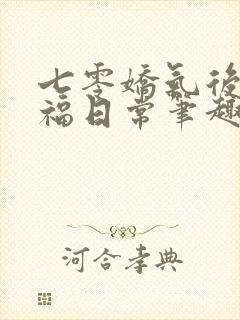 七零嬌氣後
福日常筆趣
河合孝典